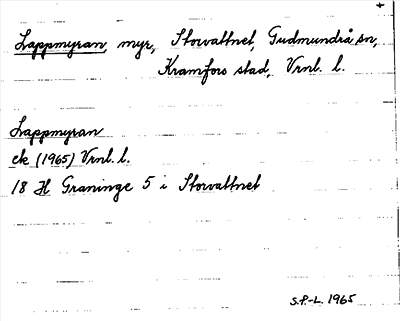 Lappmyran, myr, Storvattnet, Gudmundrå sn,
Kramfors stad, Vrnl. l.
Lappmyran
ek (1965) Vrnl. l.
18 H Graninge 5 i Storvattnet
S.P-L. 1965